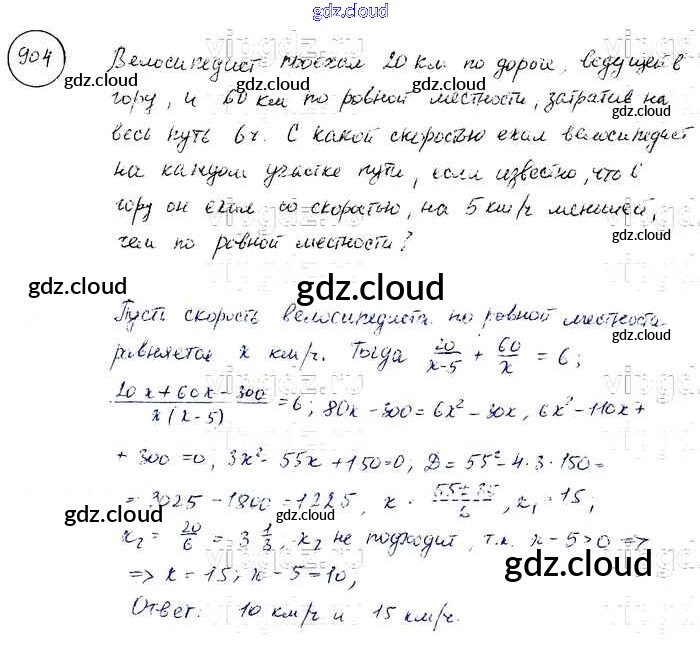 gdz.cloud
904
Велосипедист проехал 20 км по дороге, ведущей в
gdz.cloud
gdz.cloud
гору, и 60 км по ровной местности, затратив на
весь путь 6ч. С какой скоростью ехал велосипедист
на каждом участке пути, если известно, что в
гору он ехал со скоростью, на 5 км/ч меньшей,
чем по ровной местности?
gdz.cloud
gdz.cloud
gdz.cloud
Пусть скорость велосипедиста по ровной местности
равняется x км/ч. Тогда 20/(x-5) + 60/x = 6;
gdz.cloud
(20x+60x-300)/(x(x-5)) = 6; 80x-300=6x²-30x, 6x²-110x+
+300=0, 3x²-55x+150=0; D=55²-4·3·150=
gdz.cloud
=3025-1800=1225, x = (55±35)/6, x₁=15;
gdz.cloud
gdz.cloud
x₂ = 20/6 = 3 1/3, x₂ не подходит, т.к. x-5>0 =>
=> x=15; x-5=10,
gdz.cloud
Ответ: 10 км/ч и 15 км/ч.
gdz.cloud